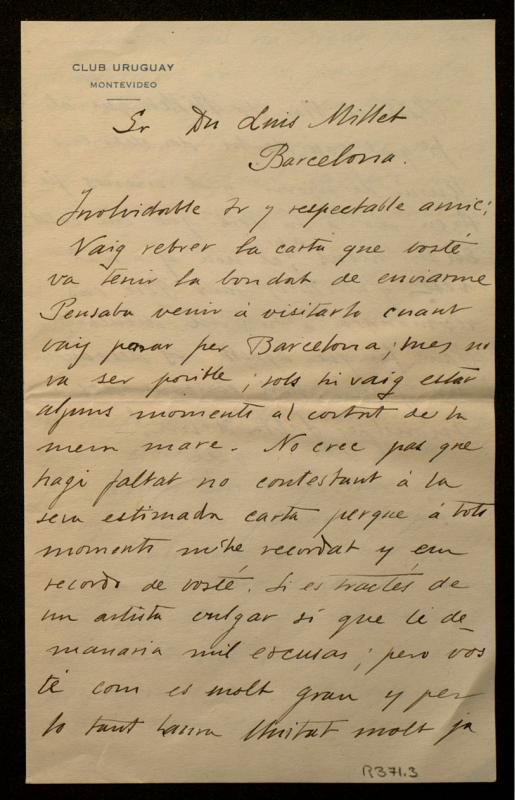 CLUB URUGUAY
MONTEVIDEO
Sr Dn Luis Millet
Barcelona.
Inolvidable Sr y respectable amic:
Vaig rebrer la carta que vosté
va tenir la bondat de enviarme
Pensaba venir á visitarlo cuant
vaig pasar per Barcelona; mes no
va ser posible; sols hi vaig estar
alguns moments al costat de la
meva mare. No crec pas que
hagi faltat no contestant á la
seva estimada carta perque á tots
moments m'he recordat y em
recordo de vosté. Si es tractés de
un artista vulgar sí que li de-
manaria mil escusas; pero vos
té com es molt gran y per
lo tant haura lluitat molt ja
R371.3